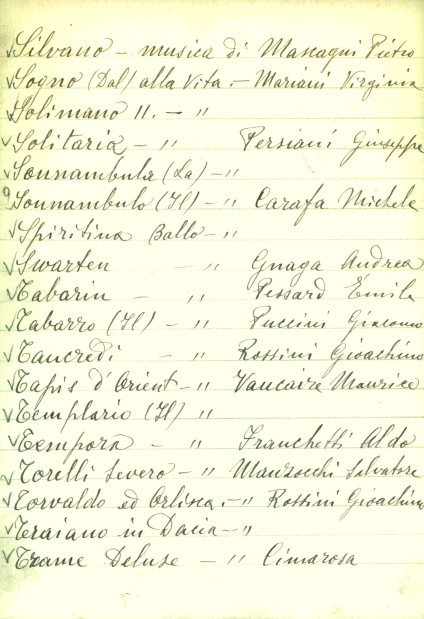 ✓Silvano – musica di Mascagni Pietro
✓Sogno (Dal) alla Vita.– Mariani Virginia
✓Solimano II. – "
✓Solitaria – " Persiani Giuseppe
✓Sonnambula (La) – "
Sonnambulo (Il) – " Carafa Michele
✓Spiritina Ballo – "
✓Swarten – " Gnaga Andrea
✓Tabarin – " Pessard Emile
✓Tabarro (Il) – " Puccini Giacomo
✓Tancredi – " Rossini Gioachino
✓Tapis d'Orient – " Vaucaire Maurice
✓Templario (Il) "
✓Tempora – " Franchetti Aldo
✓Torelli Severo – " Manzocchi Salvatore
✓Torvaldo ed Orlisca.– " Rossini Gioachino
✓Traiano in Dacia – "
✓Trame Deluse – " Cimarosa